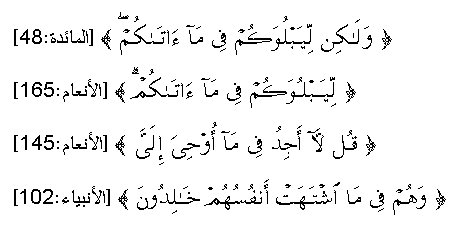 ﴿ وَلَـٰكِن لِّيَبْلُوَكُمْ فِى مَآ ءَاتَىٰكُمْ ۖ ﴾ [المائدة:48]
﴿ لِّيَبْلُوَكُمْ فِى مَآ ءَاتَىٰكُمْ ۗ ﴾ [الأنعام:165]
﴿ قُل لَّآ أَجِدُ فِى مَآ أُوْحِىَ إِلَىَّ ﴾ [الأنعام:145]
﴿ وَهُمْ فِى مَا ٱشْتَهَتْ أَنفُسُهُمْ خَـٰلِدُونَ ﴾ [الأنبياء:102]